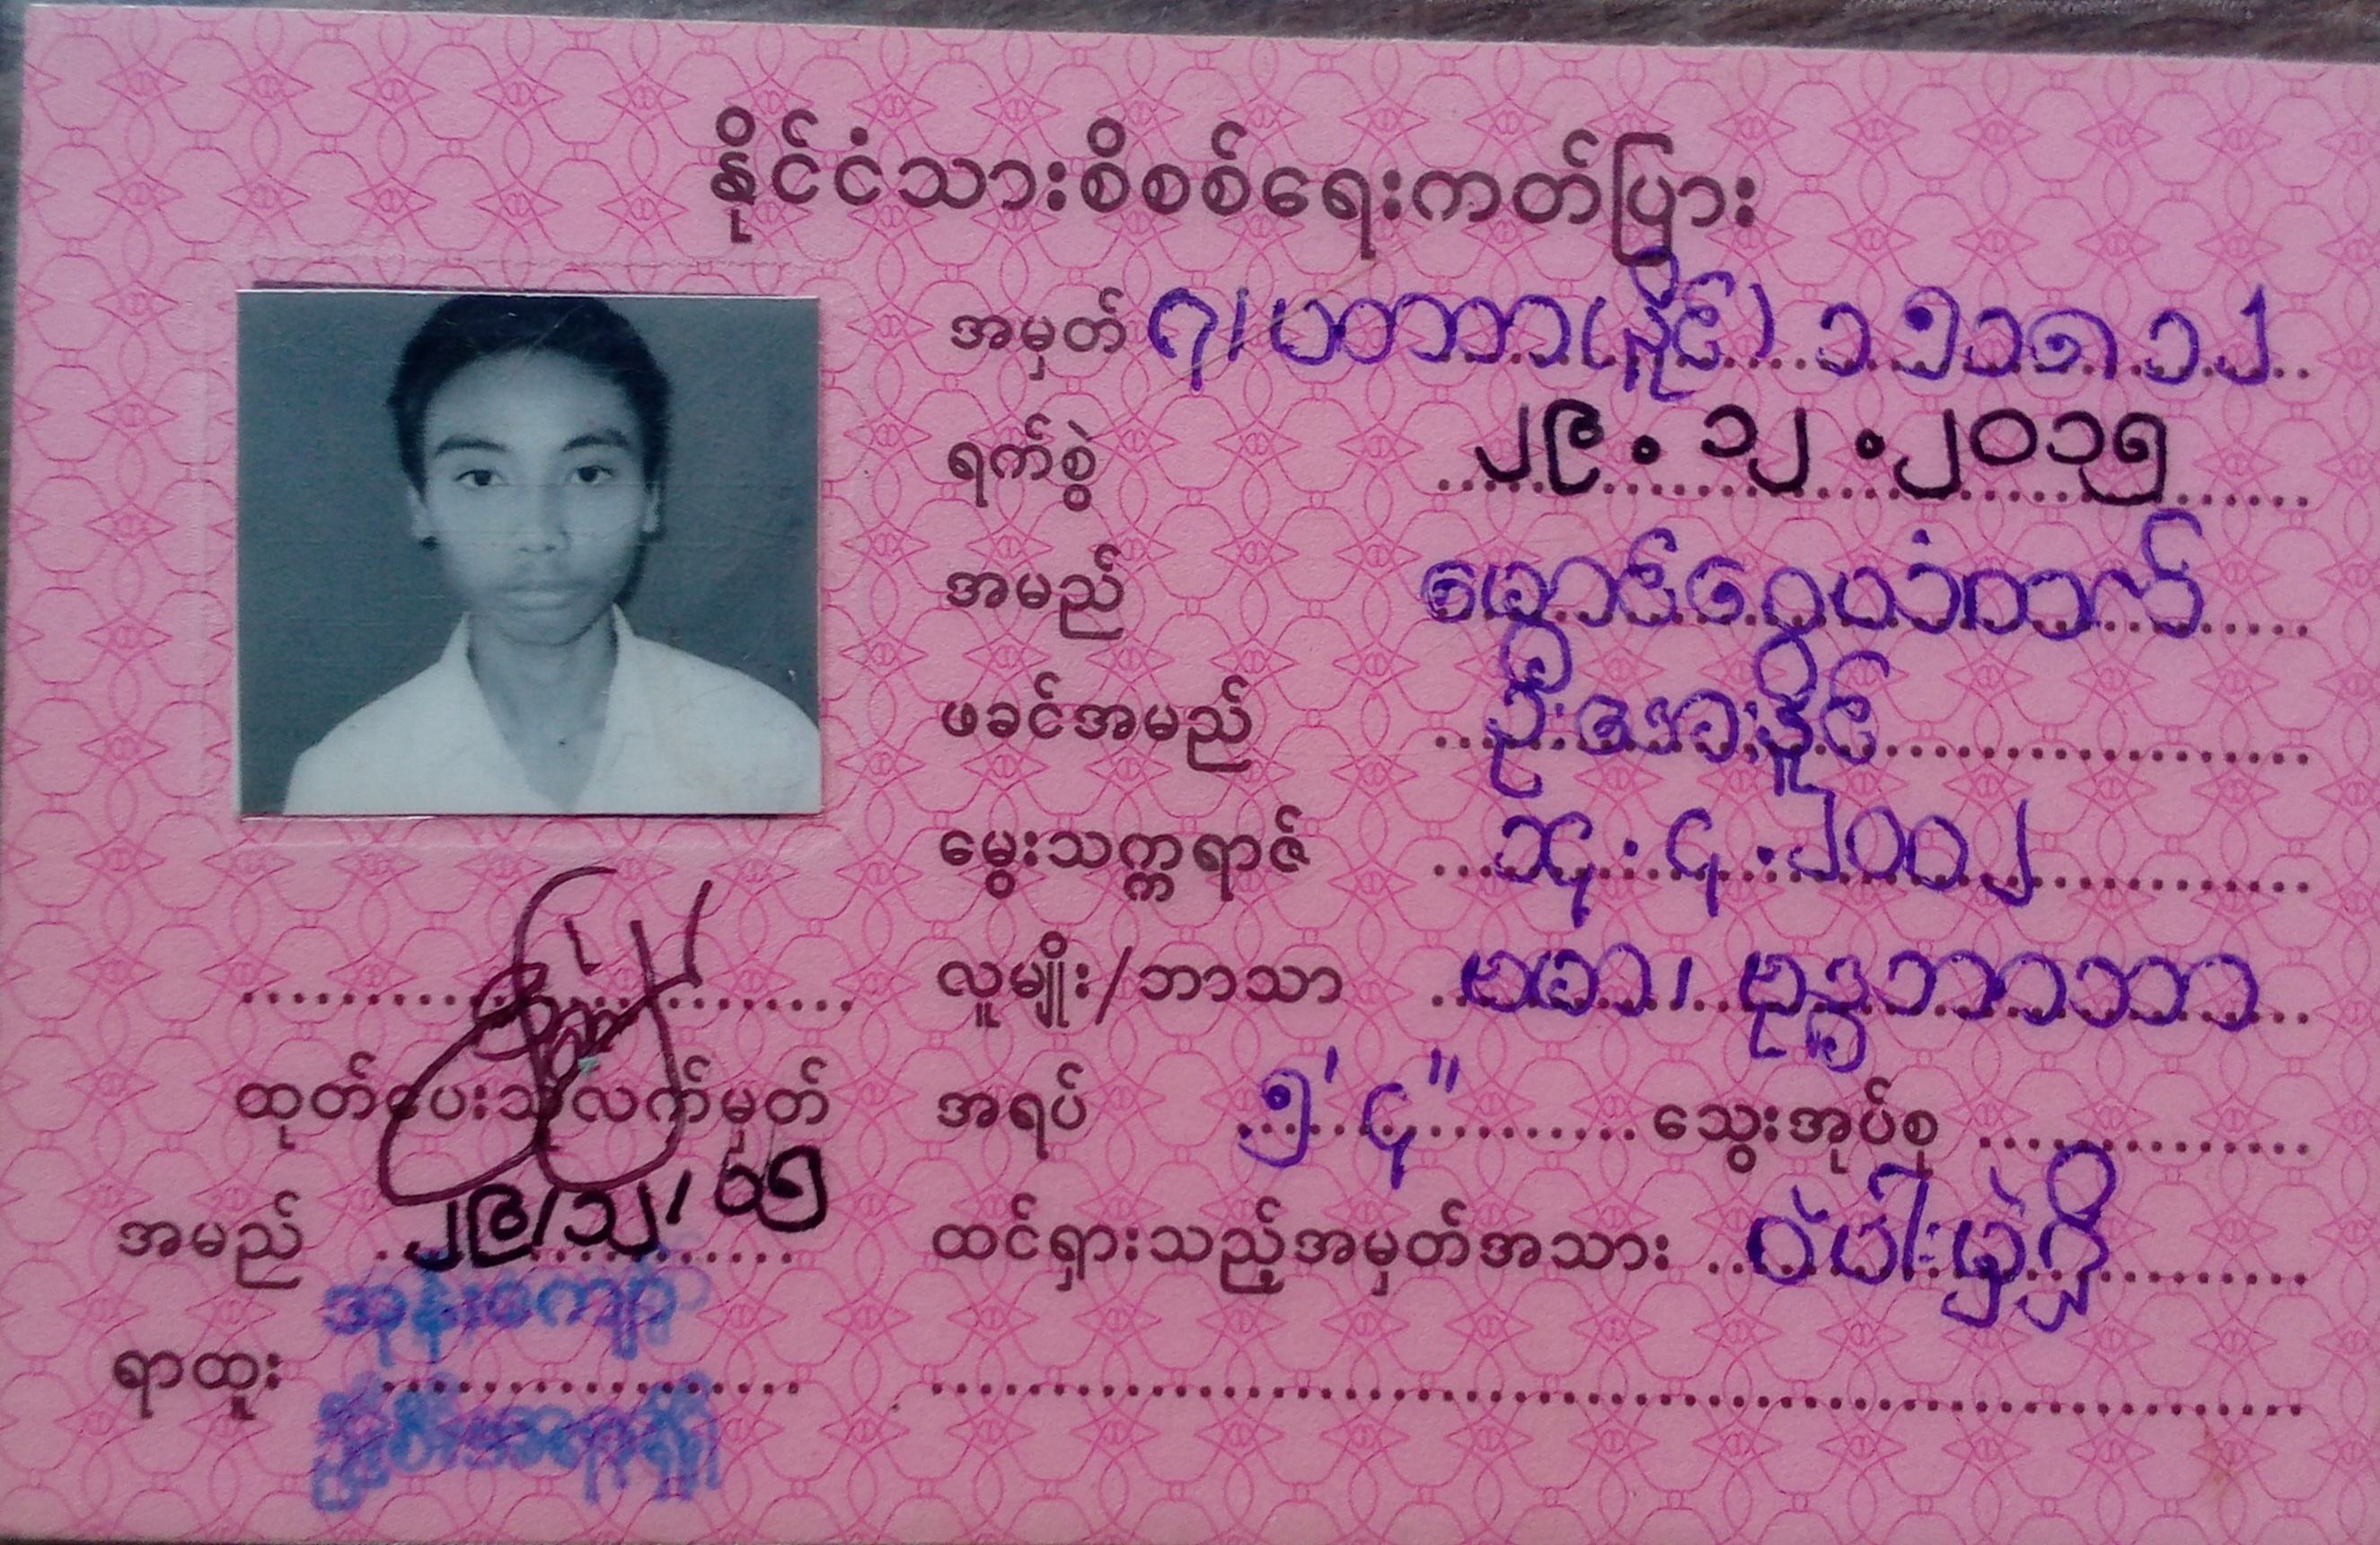 နိုင်ငံသားစိစစ်ရေးကတ်ပြား
အမှတ် ၇/ပတတ(နိုင်) ၁၅၁၈၁၂
ရက်စွဲ ၂၉.၁၂.၂၀၁၅
အမည် မောင်ဝေယံတက်
ဖခင်အမည် ဦးအေးနိုင်
မွေးသက္ကရာဇ် ၁၄.၄.၂၀၀၂
လူမျိုး/ဘာသာ ဗမာ၊ ဗုဒ္ဓဘာသာ
အရပ် ၅' ၄" သွေးအုပ်စု
ထင်ရှားသည့်အမှတ်အသား ဝဲပါးမှဲ့ရှိ
ထုတ်ပေးသူလက်မှတ်
၂၉/၁၂/၁၅
အမည် အုန်းကျော်
ရာထူး ဦးစီးအရာရှိ